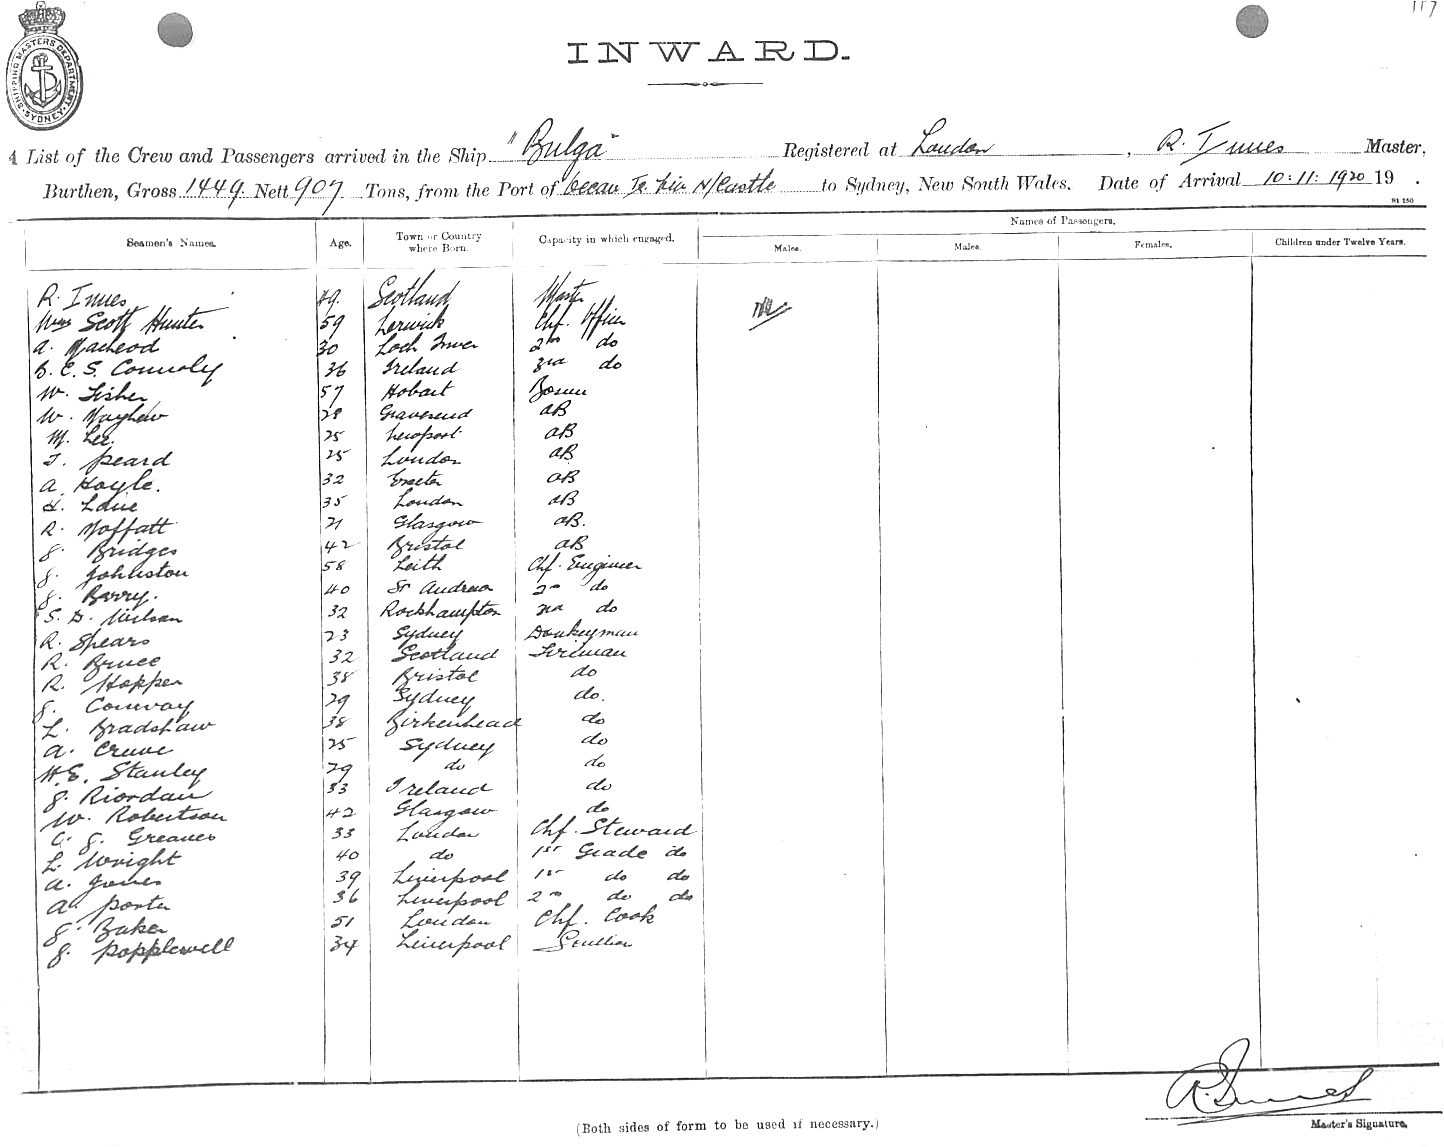 117
SHIPPING MASTERS DEPARTMENT SYDNEY
INWARD.
List of the Crew and Passengers arrived in the Ship "Bulga" Registered at London, R. Innes Master,
Burthen, Gross 1449. Nett 907 Tons, from the Port of Ocean Is via N/Castle to Sydney, New South Wales. Date of Arrival 10:11:1920 19 .
Names of Passengers.
Seamen's Names. Age. Town or Country where Born. Capacity in which engaged. Males. Males. Females. Children under Twelve Years.
R. Innes 49. Scotland Master Nil
Wm Scott Hunter 59 Lerwick Chf. Officer
A. Macleod 30 Loch Inver 2nd do
C. S. Connoly 36 Ireland 3rd do
W. Fisher 57 Hobart Bosun
W. Mayhew 28 Gravesend AB
M. Lee. 25 Newport AB
T. Peard 25 London AB
A. Hoyle. 32 Exeter AB
35 London AB
R. Moffatt 21 Glasgow AB.
J. Bridges 42 Bristol AB
J. Johnston 58 Leith Chf. Engineer
J. Barry. 40 St Andrews 2nd do
S. D. Wilson 32 Rockhampton 3rd do
R. Spears 23 Sydney Donkeyman
R. Bruce 32 Scotland Fireman
R. Hopper 38 Bristol do
J. Conway 29 Sydney do.
L. Bradshaw 38 Birkenhead do
A. 25 Sydney do
H.E. Stanley 29 do do
J. Riordan 33 Ireland do
W. Robertson 42 Glasgow do
C. J. Greaves 33 London Chf. Steward
L. Wright 40 do 1st Grade do
A. Jones 39 Liverpool 1st do do
A. Porter 36 Liverpool 2nd do do
J. Baker 51 London Chf. Cook
J. Popplewell 34 Liverpool Scullion
R. Innes
(Both sides of form to be used if necessary.)
Master's Signature.